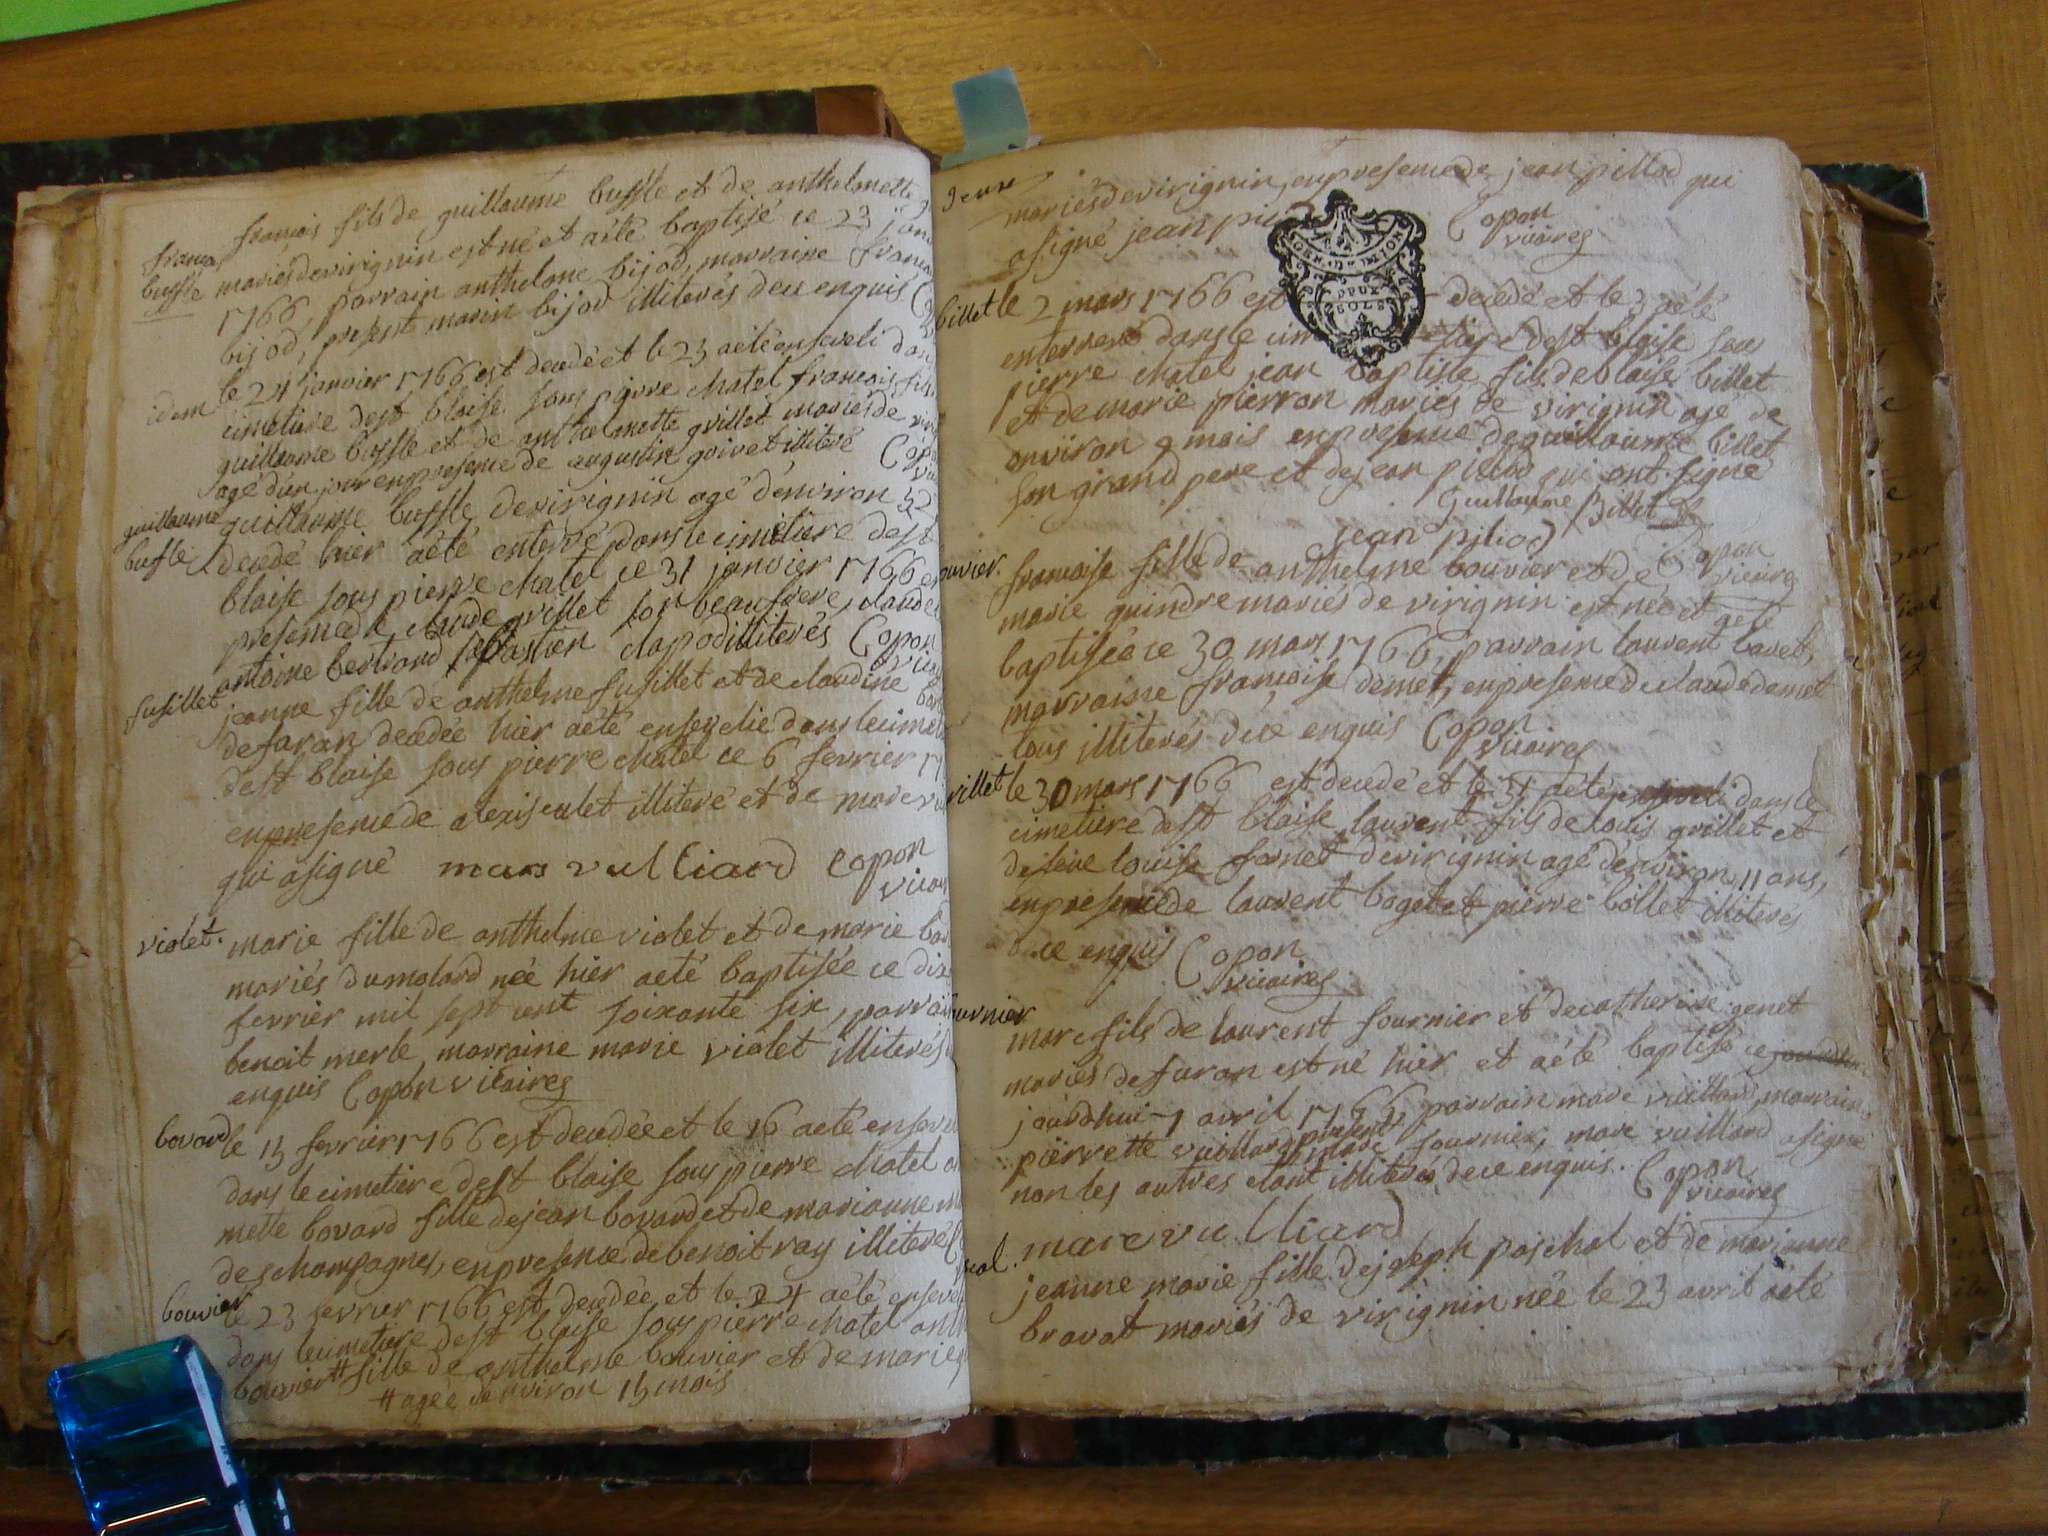 francois
buffle
francois fils de guillaume buffle et de anthelmette
mariés de virignin est né et aété baptisé ce 23 janv
1766, parrain anthelme bijod, marraine franco
bijod, present marin bijod illiterés dece enquis
idem
le 24 janvier 1766 est decedé et le 25 aété enseveli dan
cimetiere de st blaise sous pierre chatel francois fils
guillaume buffle et de anthelmette grillet mariés de vir
agé d'un jour en presence de augustin goivet illiteré Copon
guillaume
buffle
guillaume buffle de virignin agé d'environ 52
decedé hier aété enterré dans le cimetiere de st
blaise sous pierre chatel ce 31 janvier 1766 en
presence de claude grillet son beau frere, claude
antoine bertrand sebastien clapod illiterés Copon
fusillet
jeanne fille de anthelme fusillet et de claudine
de faran decedée hier aété ensevelie dans le cimet
de st blaise sous pierre chatel ce 6 fevrier 17
en presence de alexis culet illiteré et de marc vu
qui asigné marc vulliard Copon
vicair
violet
marie fille de anthelme violet et de marie
mariés du molard née hier aété baptisée ce dix
fevrier mil sept cent soixante six, parrain
benoit merle, marraine marie violet illiterés
enquis Copon vicaires
bovard
le 15 fevrier 1766 est decedée et le 16 aété ensevel
dans le cimetiere de st blaise sous pierre chatel an
mette bovard fille de jean bovard et de marianne
de champagne, en presence de benoit ray illiteré
bouvier
le 23 fevrier 1766 est decedée et le 24 aété ensevel
dans le cimetiere de st blaise sous pierre chatel anth
bouvier # fille de anthelme bouvier et de marie
# agée de environ 15 mois
mariés de virignin, en presence de jean pillod qui
asigné jean pi
Copon
vicaires
DEUX
SOLS
billet
le 2 mars 1766 est decedé et le 3 aété
enterré dans le cimetiere de st blaise sous
pierre chatel jean baptiste fils de blaise billet
et de marie pierron mariés de virignin agé de
environ 9 mois en presence de guillaume billet
son grand pere et de jean pillod qui ont signé
Guillaume Billet
jean piliod
Copon
vicaires
ouvier
francoise fille de anthelme bouvier et de
marie guindre mariés de virignin est née et aété
baptisée ce 30 mars 1766, parrain laurent bavet,
marraine francoise demet, en presence de claude demet
tous illiterés dece enquis Copon
vicaires
rillet
le 30 mars 1766 est decedé et le 31 aété enseveli dans le
cimetiere de st blaise, laurent fils de louis grillet et
de feue louise fornet de virignin agé d'environ 11 ans,
en presence de laurent baget et pierre bollet illiterés
dece enquis Copon
vicaires
urnier
marc fils de laurent fournier et de catherine genet
mariés de faran est né hier et aété baptisé ce
jourdhui 1 avril 1766, parrain marc vuillard, marraine
pierrette vuillard, present marc fournier, marc vuillard asigné
non les autres etant illiterés dece enquis. Copon
vicaires
marc vulliard
jeanne marie fille de joseph paschal et de marianne
bravat mariés de virignin née le 23 avril aété